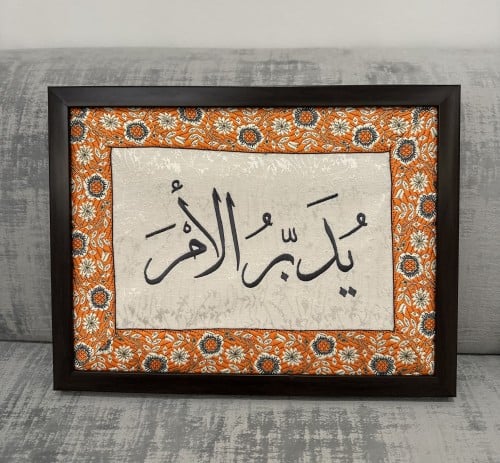 يُدَبِّرُ الأَمْرَ